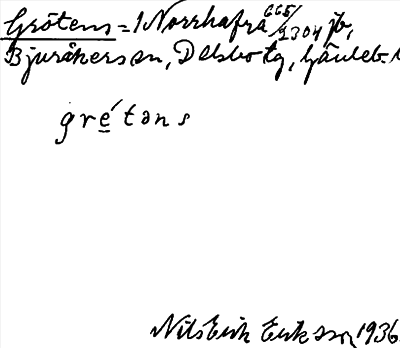 Grötens = 1 Norrhafra 665/2304 jb,
Bjuråkers sn, Delsbo tg, Gävleb. l
gre´təns
Nils Erik Eriksson 1936